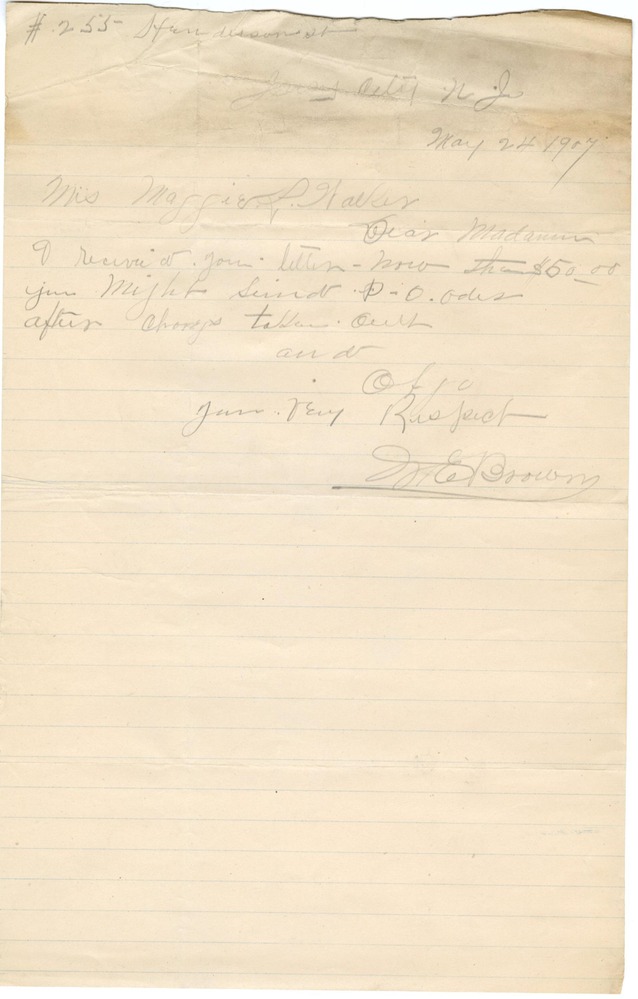 # 255 Henderson st
Jersey City N. J.
May 24 1907
Mis Maggie L. Walker
Dear Madamm
I receivd your letter - now than $50.00
you Might Send P-O. oder
after charge taken Outt
and
Oblg
your very Respect
W E Brown